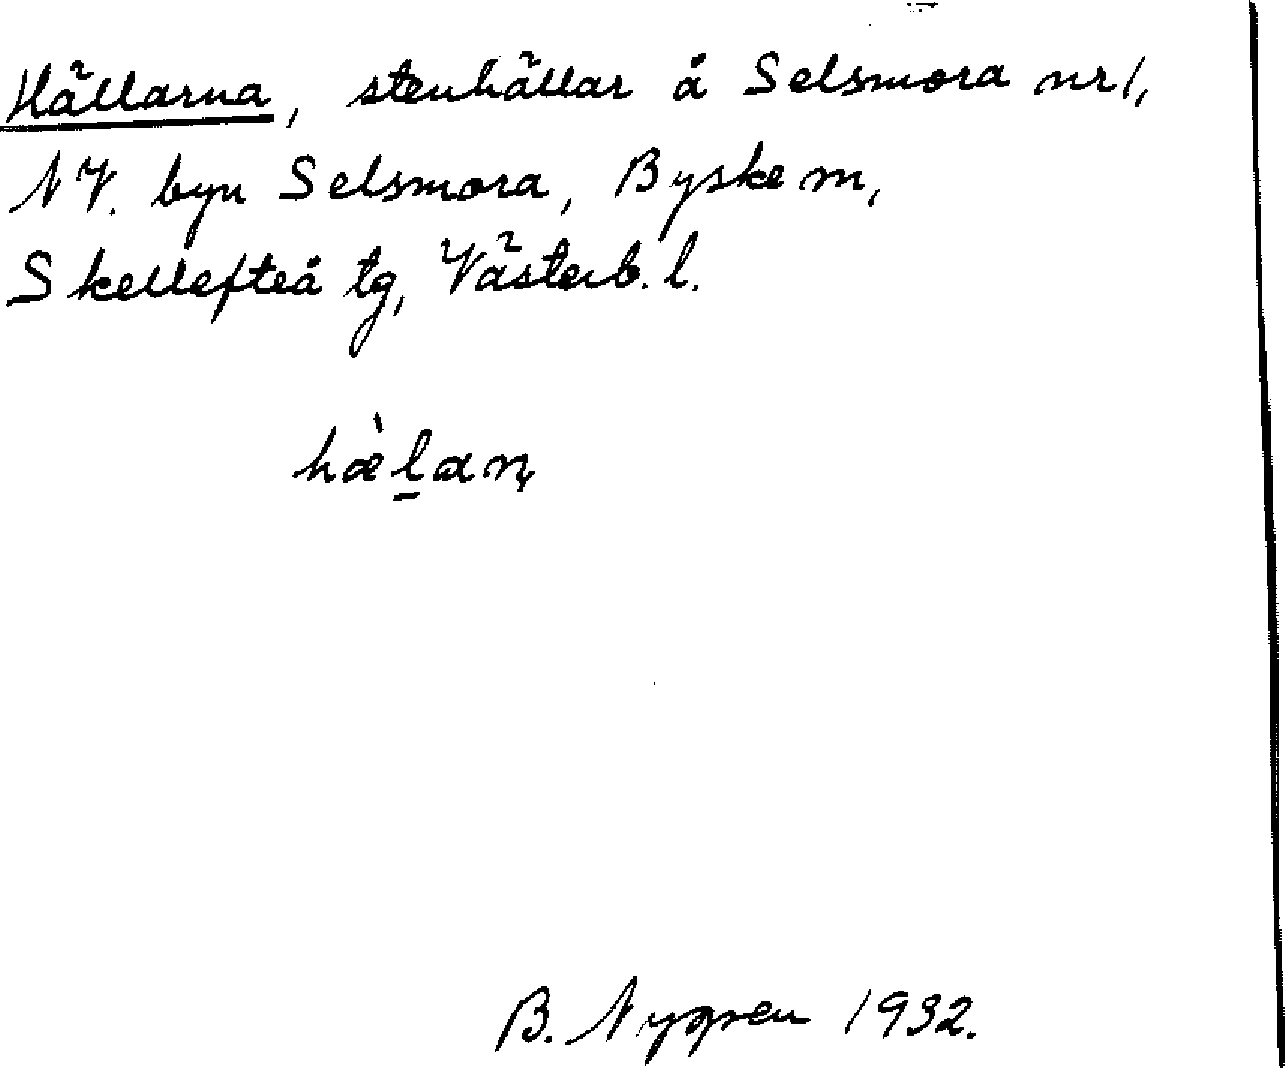 Hällarna, stenhällar å Selsmora nr 1,
NV. byn Selsmora, Byske m,
Skellefteå tg, Västerb. l.
hæ̀l̠aṇ
B. Nygren 1932.